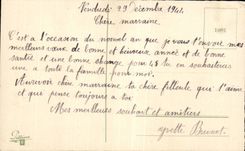 Vendredi 29 décembre 1941
Chère marraine
C'est à l'occasion du nouvel an que je t'envoie mes
meilleurs vœux de bonne et heureuse année et de bonne
santé et une bonne change pour 42 tu en souhaiteras
une a toute la famille pour moi.
Aurevoir chère marraine ta chère filleule que t'aime
et qui pense toujours à toi
Mes meilleurs souhait et amitiers
yvette Brunot